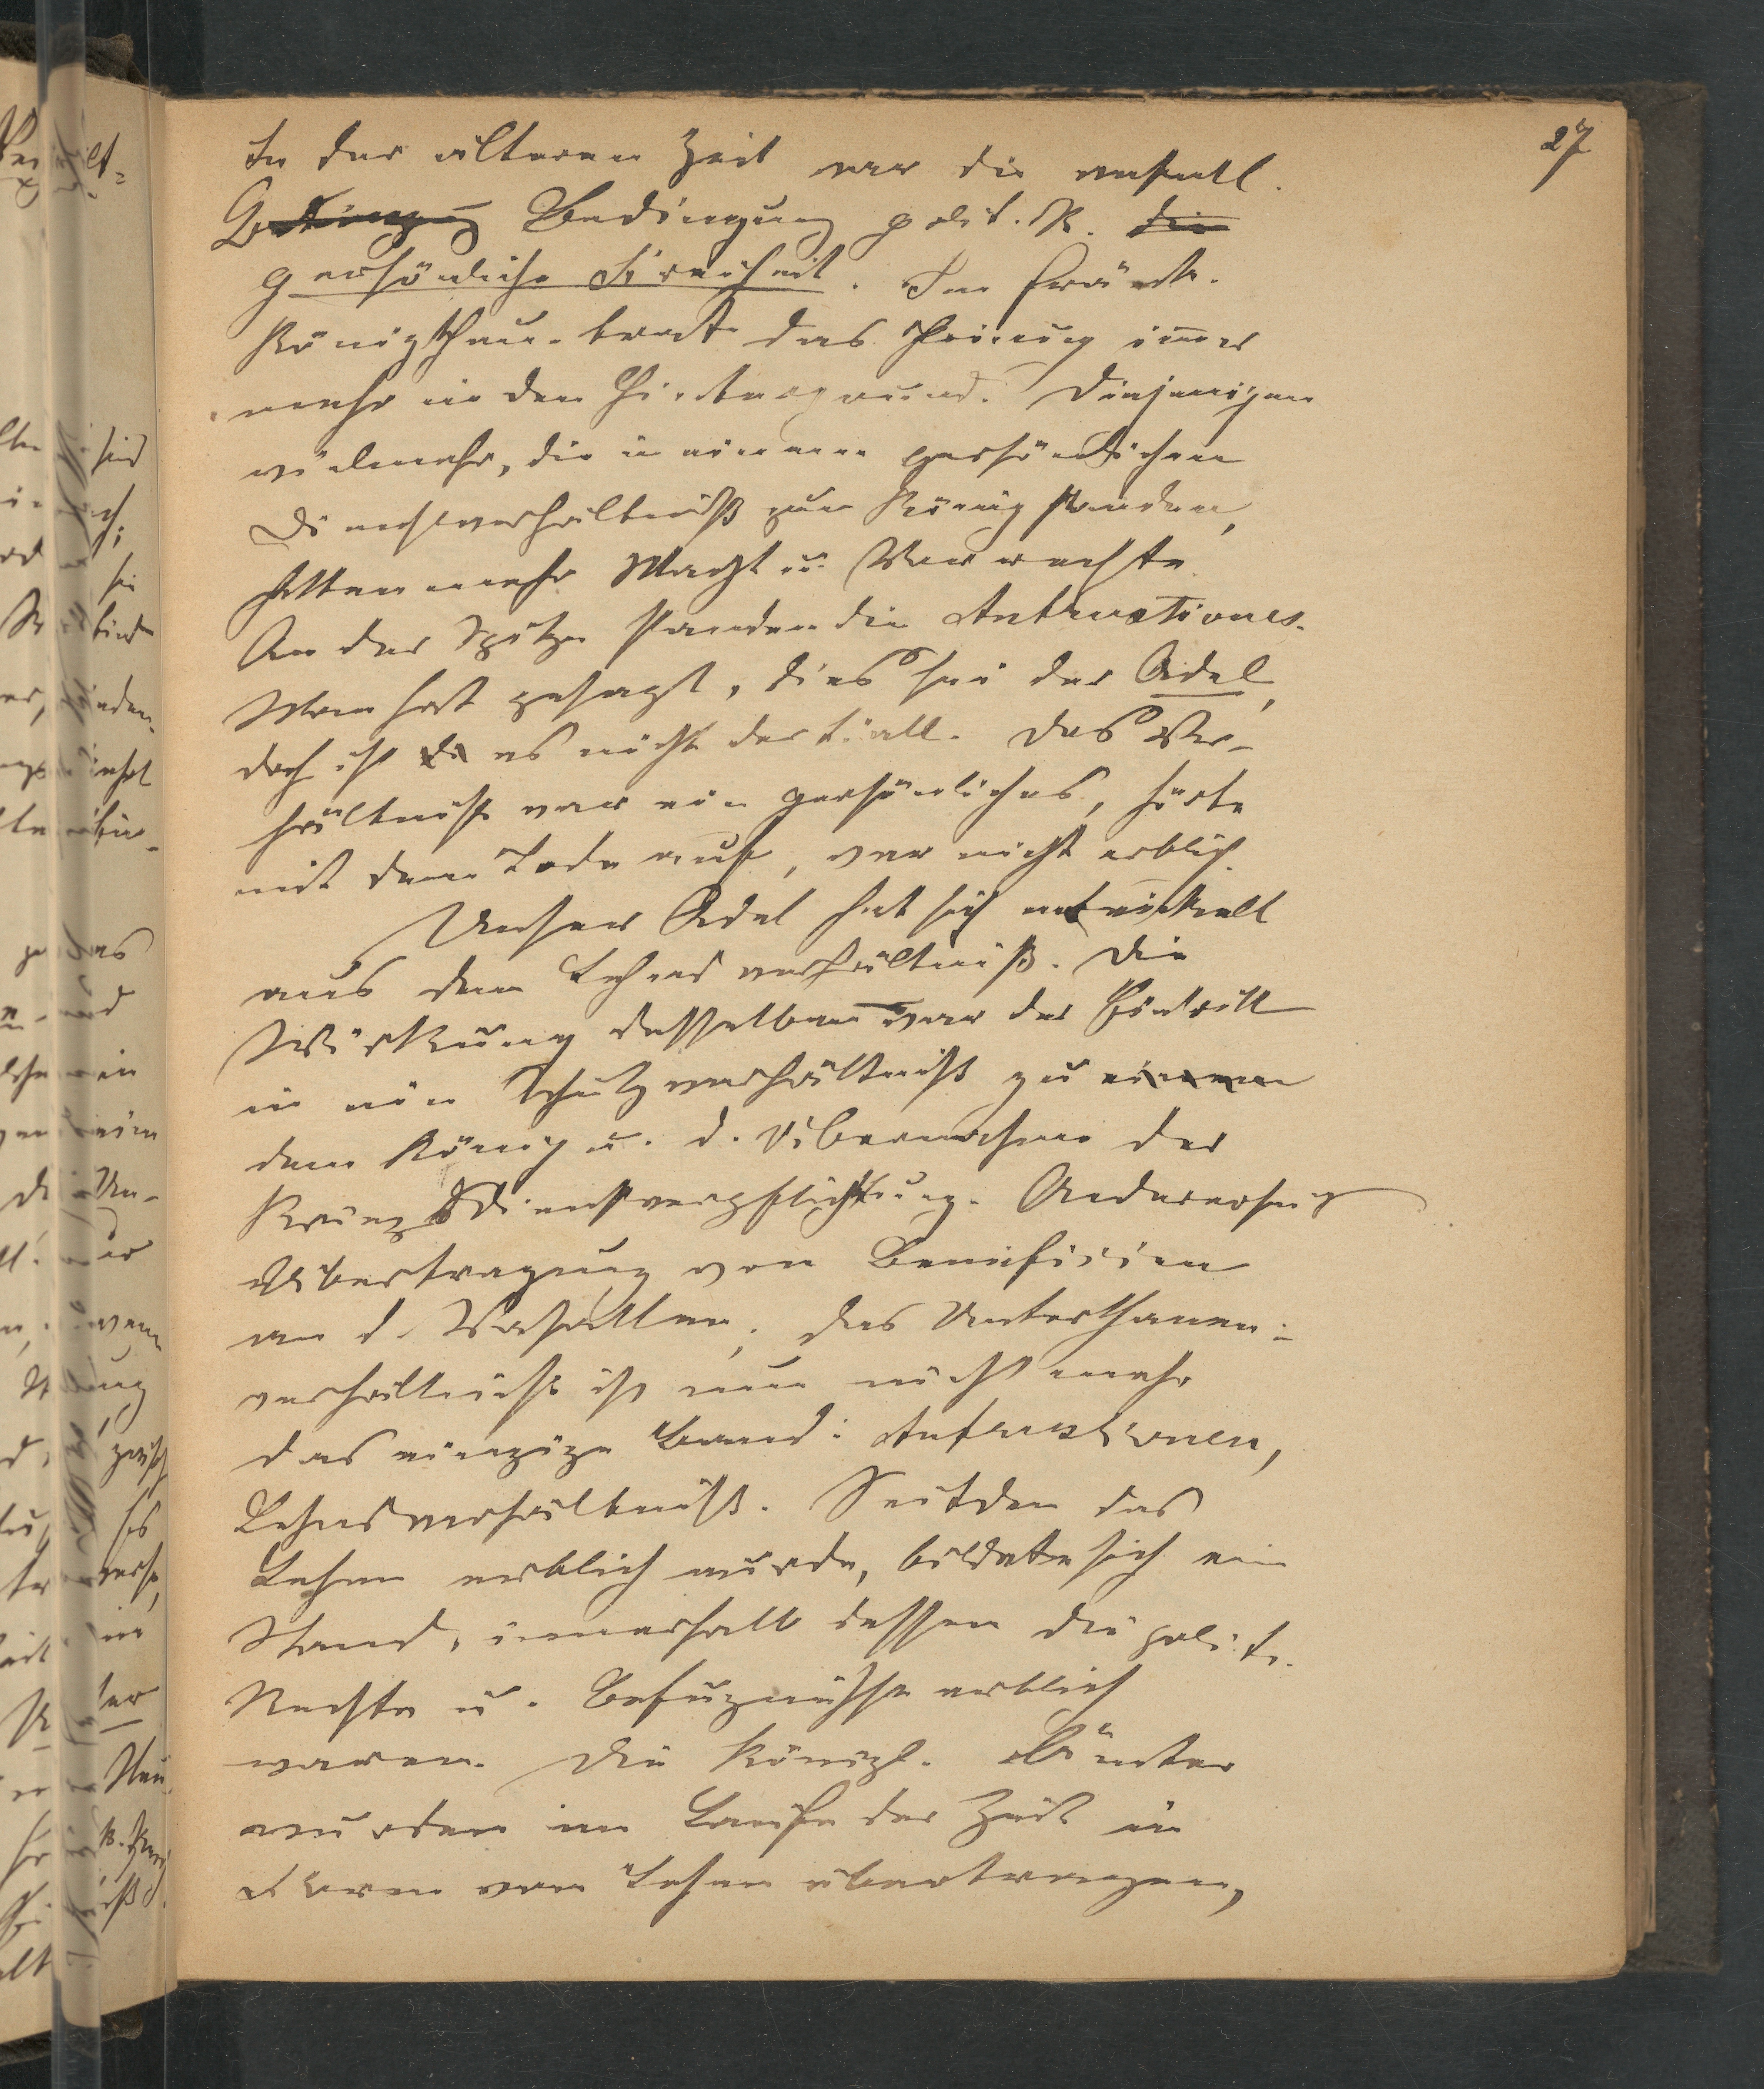 27
In der älteren Zeit war die wesentl.
Bedingung Bedingung polit. R. die
persönliche Freiheit. Im fränk.
Königthum trat das Princip immer
mehr in den Hintergrund. Diejenigen
vielmehr, die in einem persönlichen
Dienstverhältniß zum König standen,
hatten mehr Macht u. Vorrechte.
An der Spitze standen die Antrustiones.
Man hat gesagt, dies sei der Adel,
doch ist es nicht der Fall. Das Ver-
hältniß war ein persönliches, hörte
mit dem Tode auf, war nicht erblich.
Unser Adel hat sich entwickelt
aus dem Lehensverhältniß. Die
Wirkung desselben war der Eintritt
in ein Schutzverhältniß zu einem
dem König u. d. Übernahme der
Kriegsdienstverpflichtung. Andererseits
Übertragung von Beneficien
an d. Vasallen. Das Unterthanen-
verhältniß ist nun nicht mehr
das einzige Band: Antrustionen,
Lehnsverhältniß. Seitdem das
Lehen erblich wurde, bildete sich ein
Stand, innerhalb dessen die polit.
Rechte u. Befugnisse erblich
waren. Die Königl. Ämter
wurden im Laufe der Zeit in
Form von Lehen übertragen,